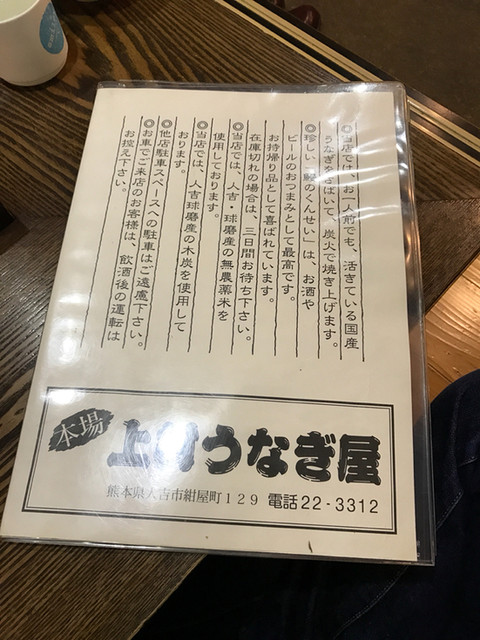 ◎当店では、お一人前でも、活きている国産
うなぎをさばいて、炭火で焼き上げます。
◎珍しい「鰻のくんせい」は、お酒や
ビールのおつまみとして最高です。
お持帰り品として喜ばれています。
在庫切れの場合は、三日間お待ち下さい。
◎当店では、人吉・球磨産の無農薬米を
使用しております。
◎当店では、人吉球磨産の木炭を使用して
おります。
◎他店駐車スペースへの駐車はご遠慮下さい。
◎お車でご来店のお客様は、飲酒後の運転は
お控え下さい。
本場
上村うなぎ屋
熊本県人吉市紺屋町129 電話22-3312